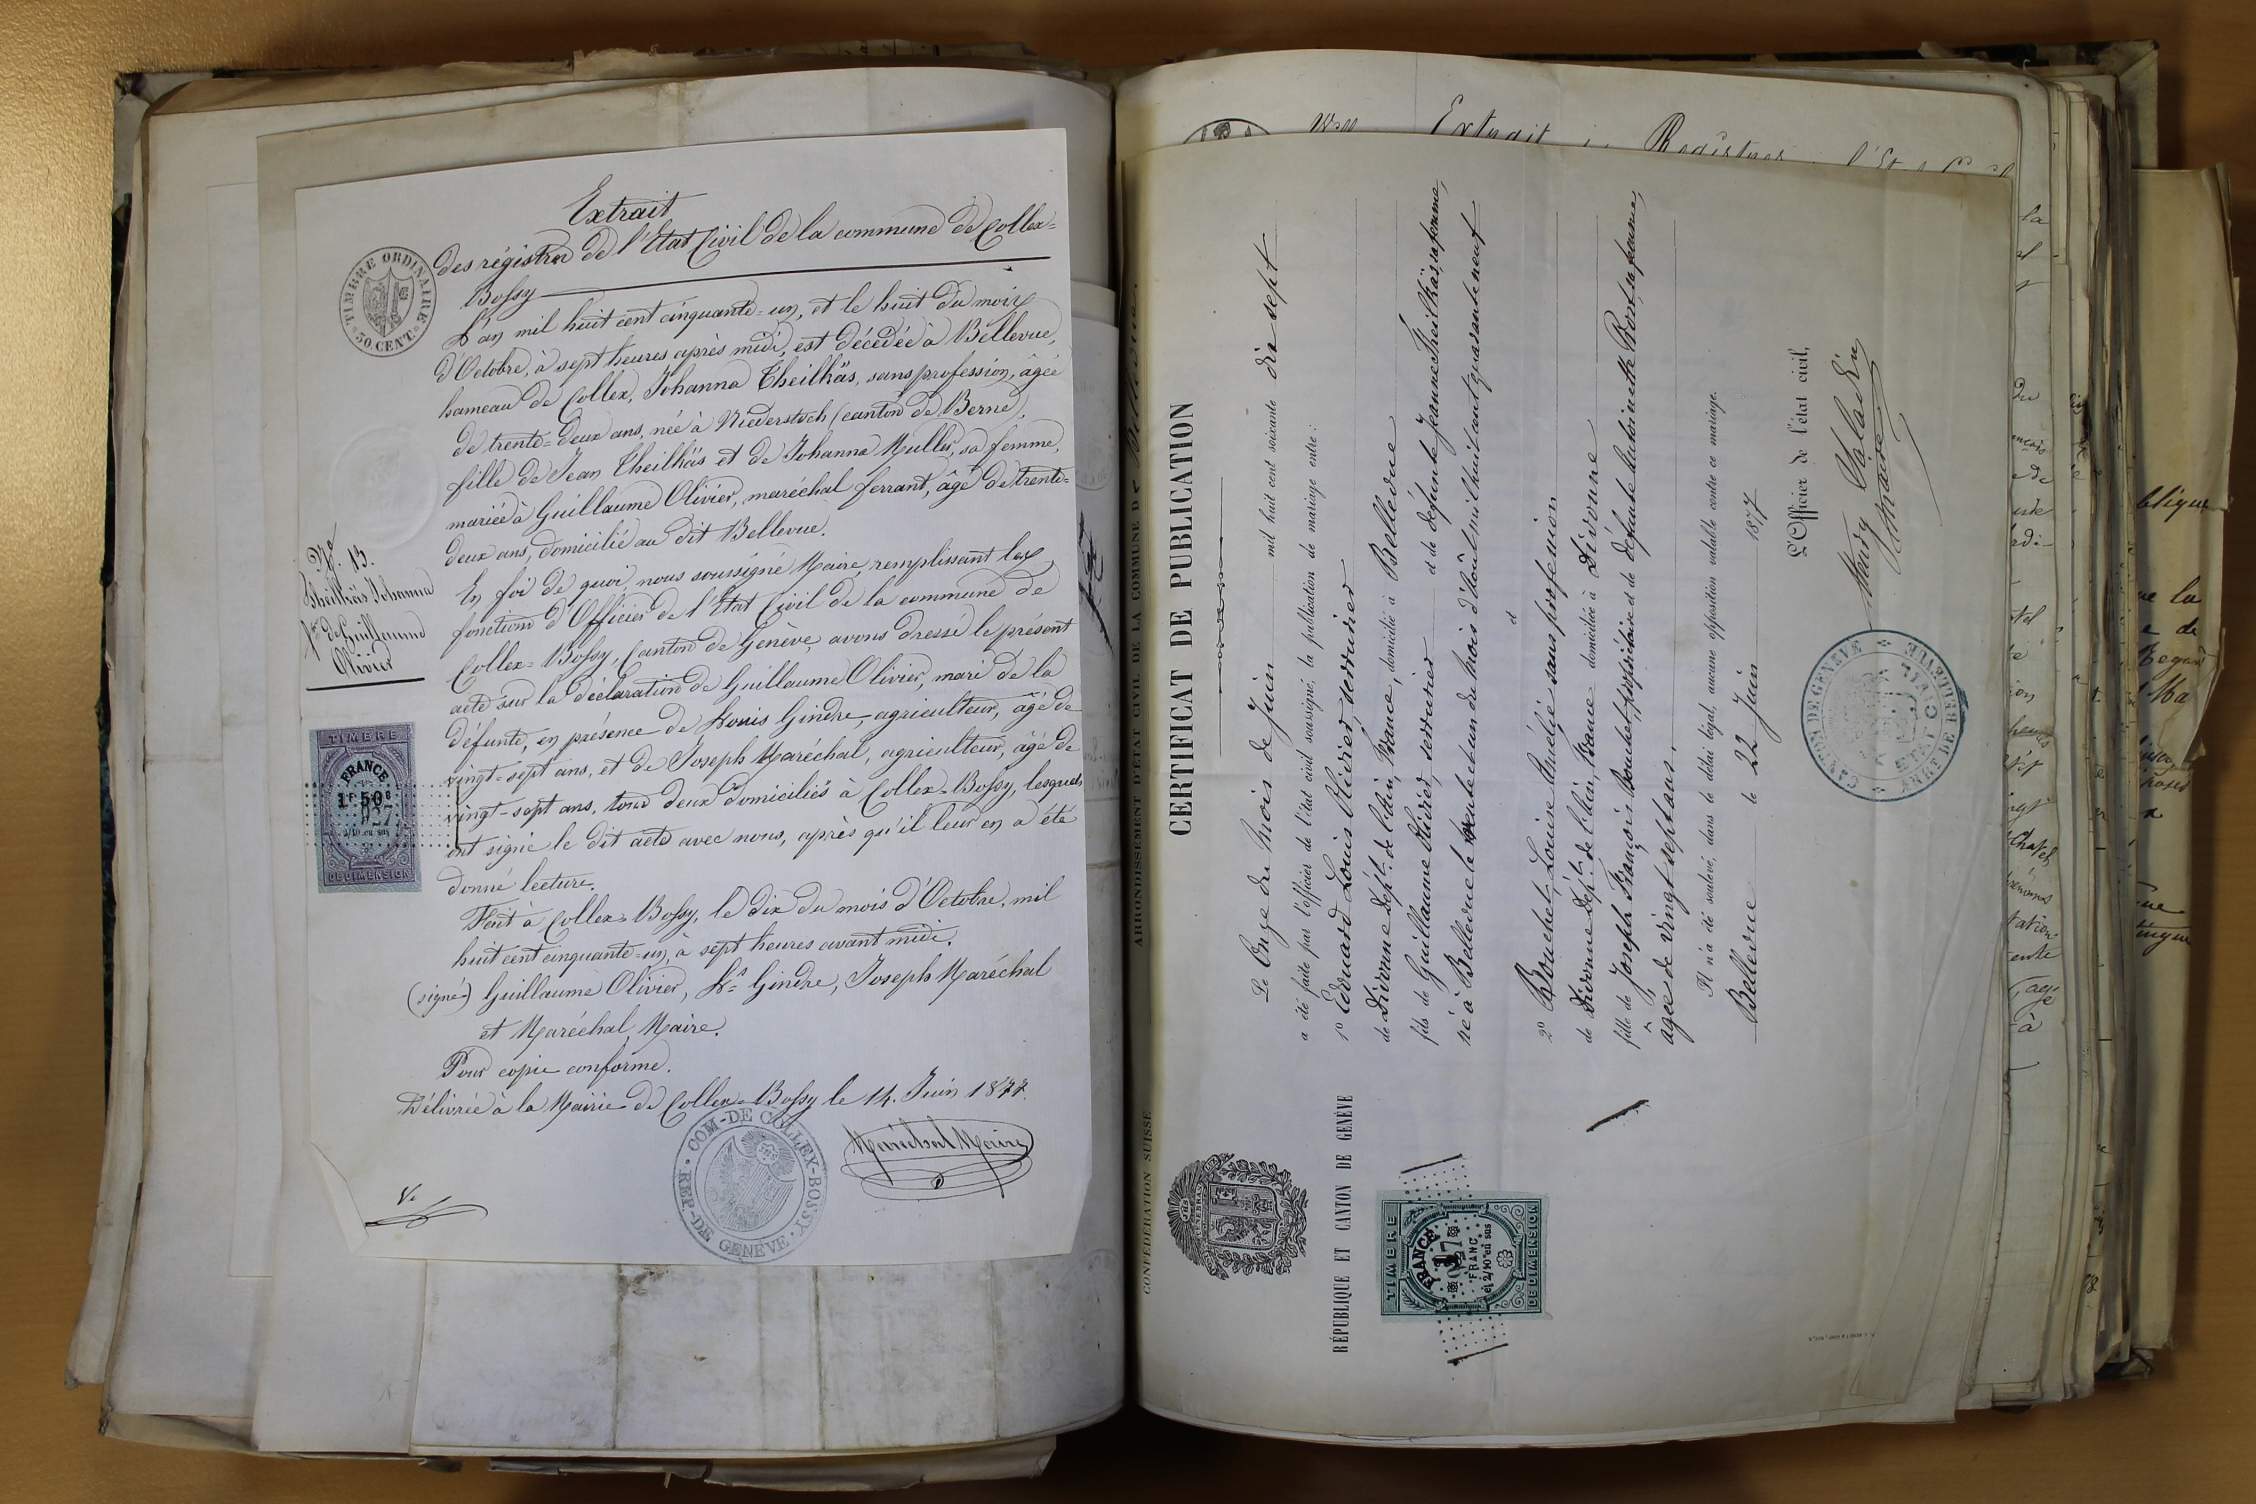 Extrait
des régistres de l'Etat Civil de la commune de Collex=
Bossy
TIMBRE ORDINAIRE
50 CENT.
L'an mil huit cent cinquante=un, et le huit du mois
d'Octobre, à sept heures après midi, est décédée à Bellevue,
hameau de Collex, Johanna Theilkäs, sans profession, âgée
de trente=deux ans, née à (canton de Berne),
fille de Jean Theilkäs et de Johanna Muller, sa femme,
mariée à Guillaume Olivier, maréchal ferrant, âgé de trente=
deux ans, domicilié au dit Bellevue.
En foi de quoi, nous soussigné Maire, remplissant les
fonctions d'Officier de l'Etat Civil de la commune de
Collex=Bossy, Canton de Genève, avons dressé le présent
acte sur la déclaration de Guillaume Olivier, mari de la
défunte, en présence de Louis Gindre, agriculteur, âgé de
vingt=sept ans, et de Joseph Maréchal, agriculteur, âgé de
vingt-sept ans, tous deux domiciliés à Collex=Bossy, lesquels
ont signé le dit acte avec nous, après qu'il leur en a été
donné lecture.
Fait à Collex=Bossy, le dix du mois d'Octobre, mil
huit cent cinquante=un, à sept heures avant midi.
(signé) Guillaume Olivier, Ls Gindre, Joseph Maréchal
et Maréchal, Maire.
Pour copie conforme.
Délivrée à la Mairie de Collex=Bossy le 14. Juin 1877.
Maréchal Maire
COM-DE COLLEX-BOSSY
REP-DE GENEVE
No. 13.
Theilkäs Johanna
fe de Guillaume
Olivier
TIMBRE
FRANCE
1F 50c
927
2/10 en sus
DE DIMENSION
CONFÉDÉRATION SUISSE
ARRONDISSEMENT D'ÉTAT CIVIL DE LA COMMUNE DE Bellevue.
RÉPUBLIQUE ET CANTON DE GENÈVE
CERTIFICAT DE PUBLICATION
Le Onze du Mois de Juin mil huit cent soixante dix sept
a été faite par l'officier de l'état civil soussigné, la publication de mariage entre :
1o Edouard Louis Olivier, serrurier
de Divonne Dépt. de l'ain, France, domicilié à Bellevue
fils de Guillaume Olivier, serrurier et de défunte Jeanne Theilkäs, sa femme,
né à Bellevue le trente et un du Mois d'Août mil huit cent quarante neuf
et
2o Bouchet, Louise Amélie sans profession
de Divonne Dépt. de l'Ain, France domiciliée à Divonne
fille de Joseph François Bouchet, propriétaire et de défunte Antoinette Prost, sa femme,
agée de vingt sept ans.
Il n'a été soulevé, dans le délai légal, aucune opposition valable contre ce mariage.
Bellevue le 22 Juin 1877
L'Officier de l'état civil,
Maire
CANTON DE GENÈVE
ETAT CIVIL
ARRT DE BELLEVUE
TIMBRE
FRANCE
1
927
FRANC
et 2/10 en sus
DE DIMENSION
Extrait Registres